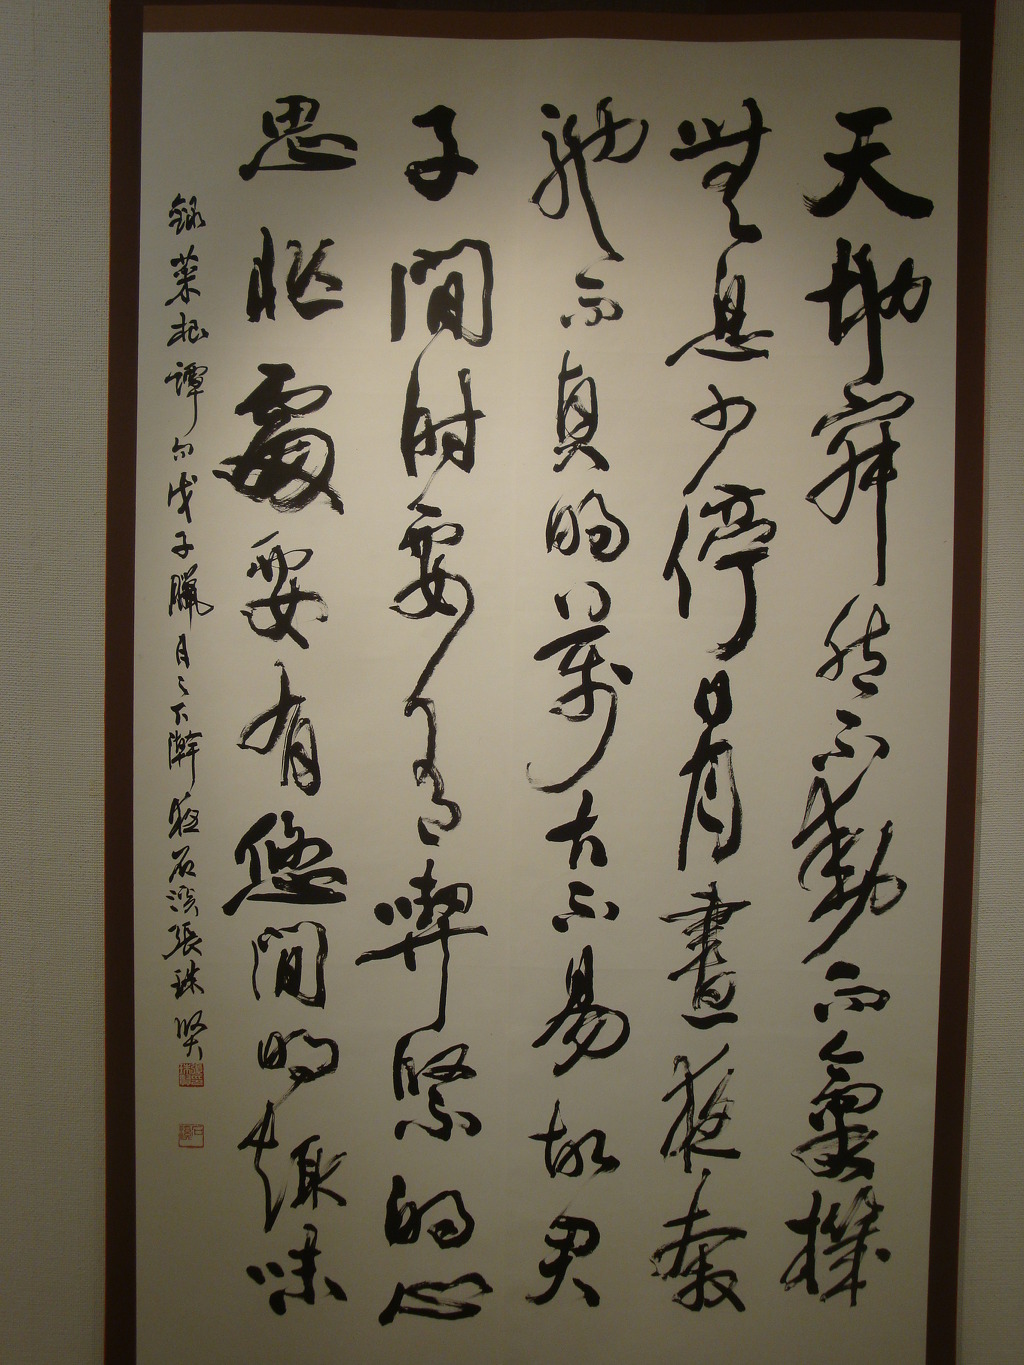 天地寂然不動而氣機
無息少停日月晝夜奔
馳而貞明萬古不易故君
子閒時要有喫緊的心
思忙處要有悠閒的趣味
錄菜根譚句戊子臘月之下澣石溪張珠賢